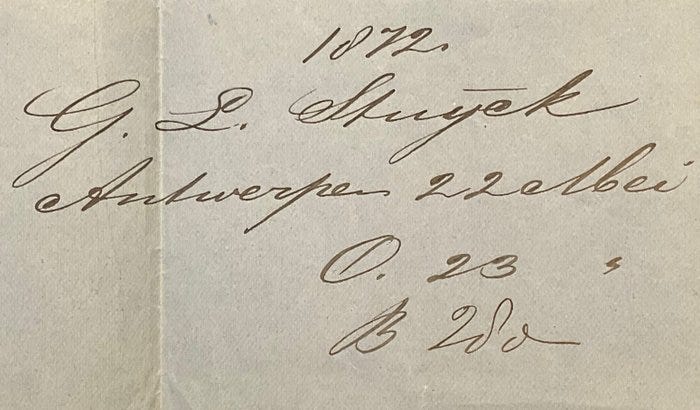 1872.
G. L. Stuÿck
Antwerpen 22 Mei
O. 23 "
B 28 do